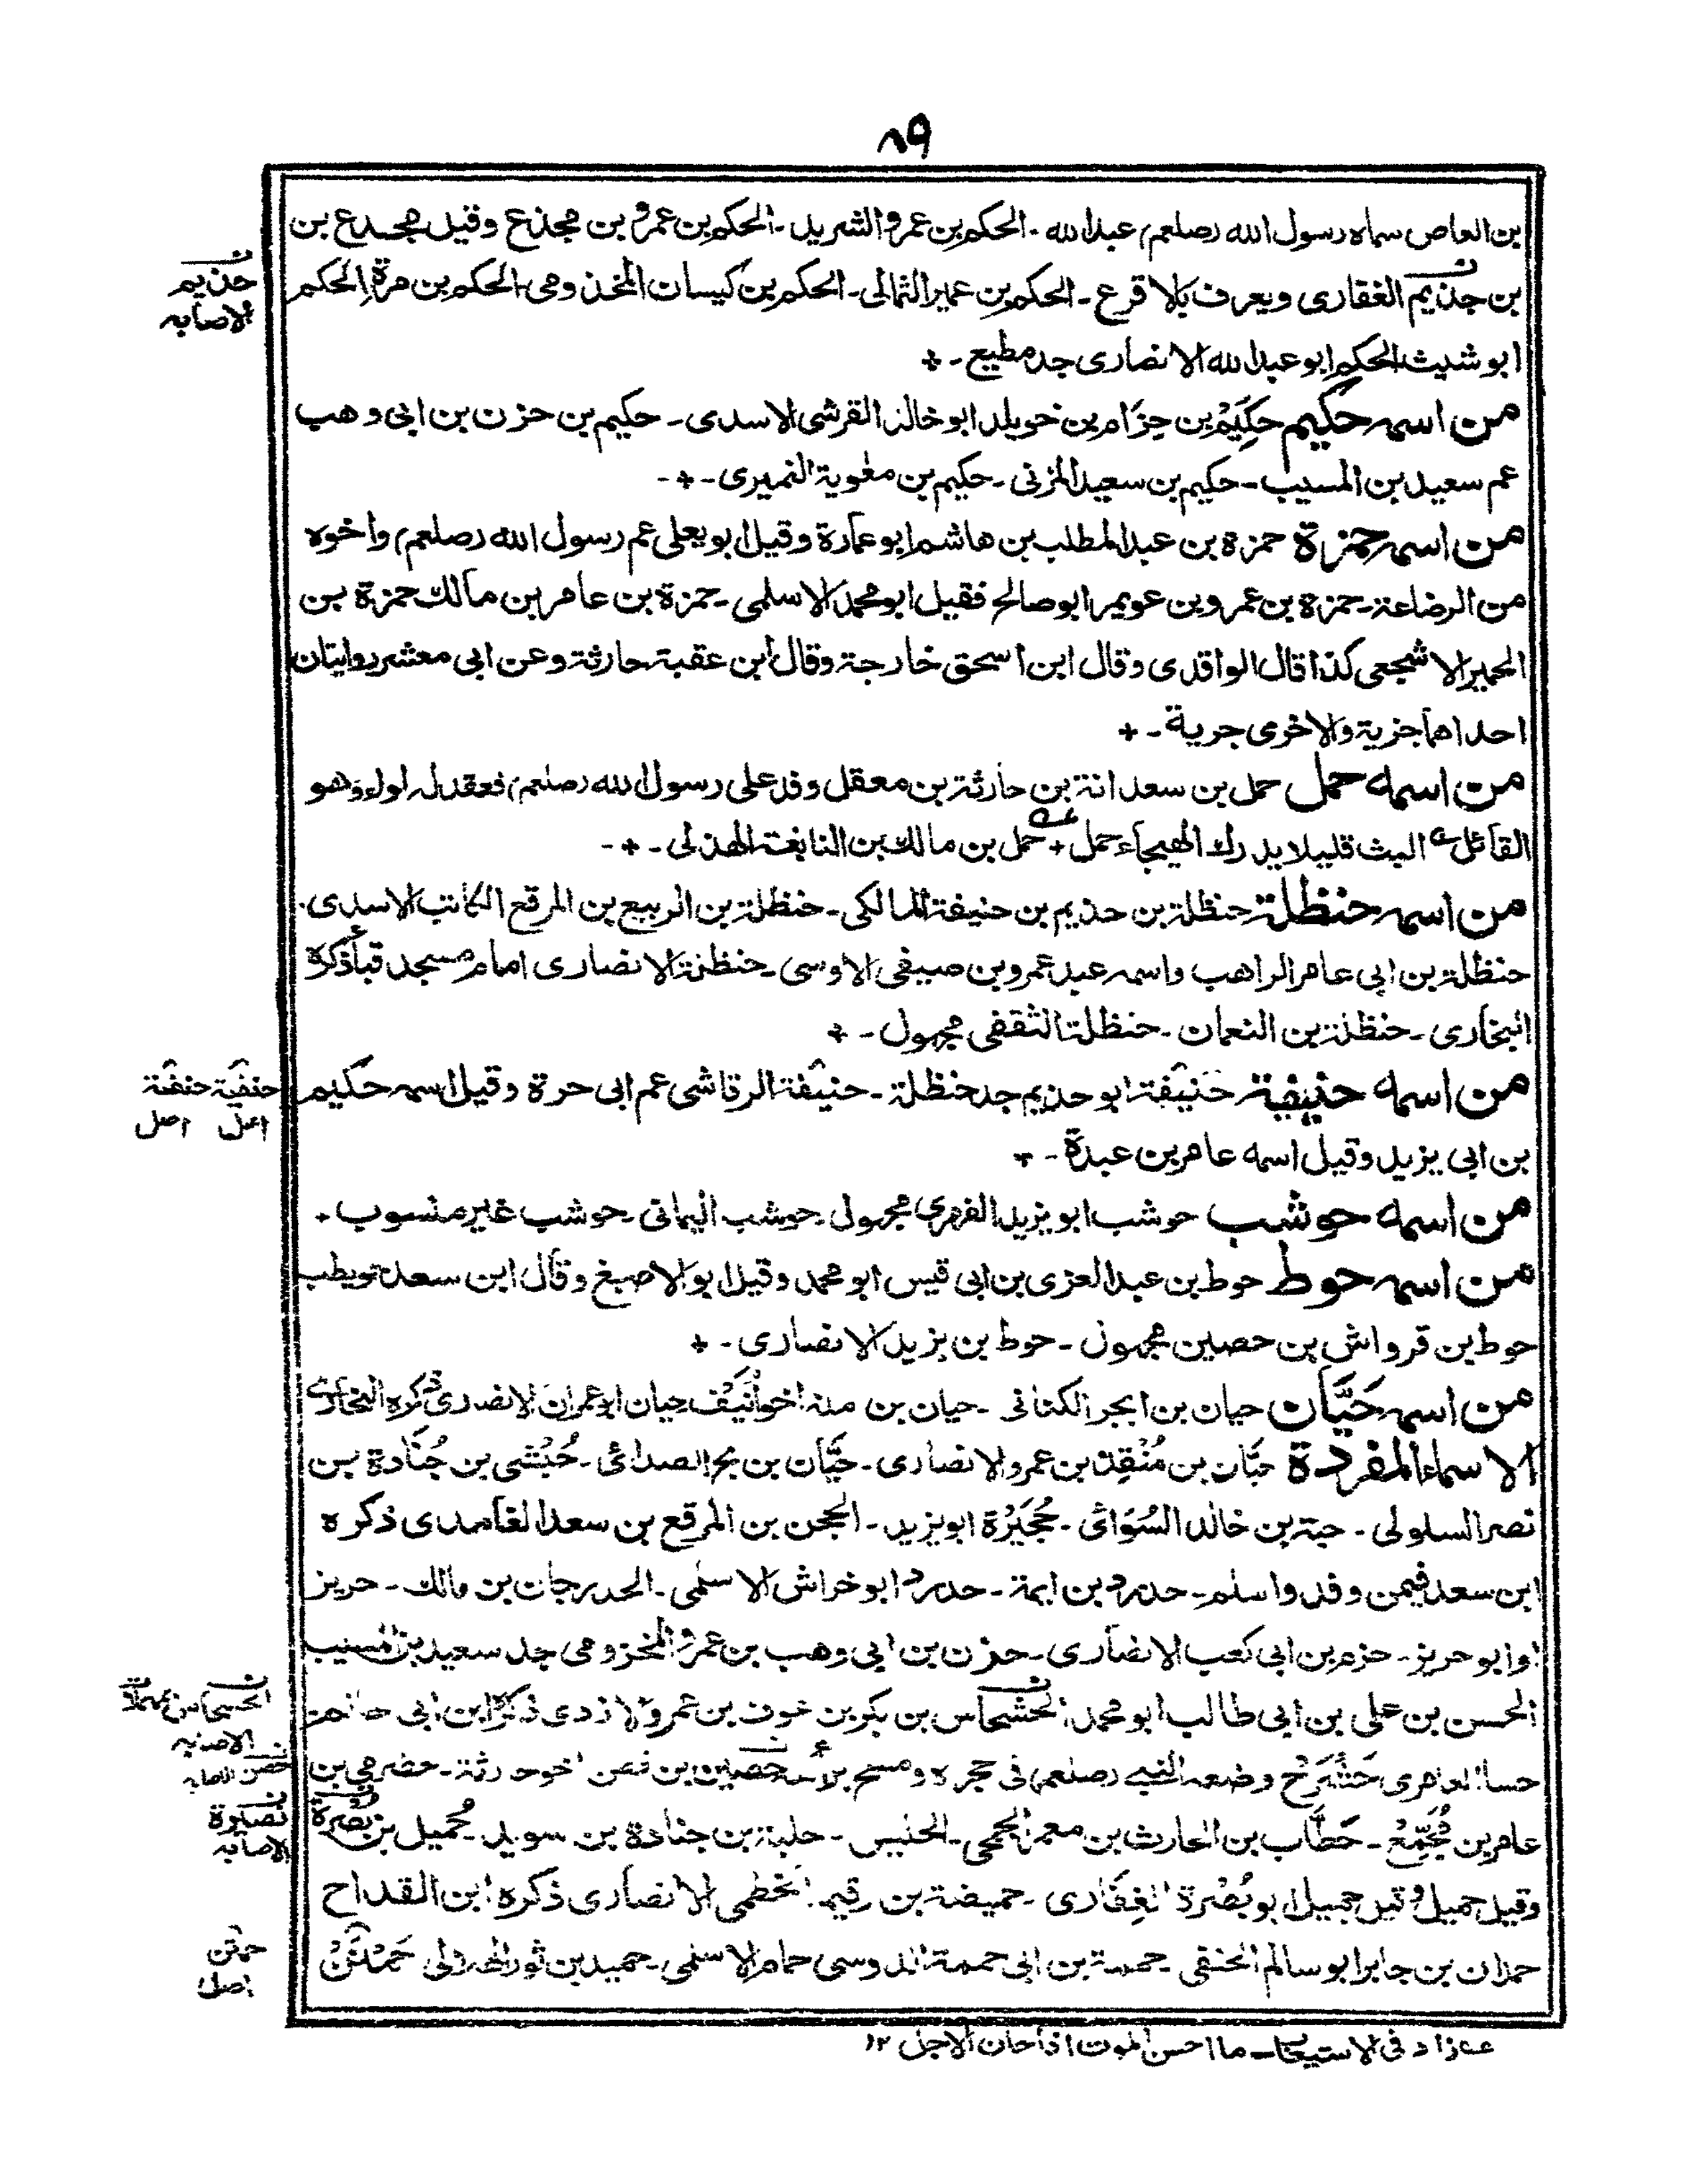 ۸۹
بن العاص سماه رسول الله (صلعم) عبد الله - الحكم بن عمرو الشريد - الحكم بن عمرو بن مجذع وقيل مجدع بن
بن جذيم الغفارى ويعرف بالاقرع - الحكم بن عمير الثمالى - الحكم بن كيسان المخذومى - الحكم بن مرة الحكم
حذيم
الاصابه
ابو شيث الحكم ابو عبد الله الانصارى جد مطيع - +
من اسمه حكيم حَكِيْمُ بن حِزَام بن خويلد ابو خالد القرشى الاسدى - حكيم بن حزن بن ابى وهب
عم سعيد بن المسيب - حكيم بن سعيد المزنى - حكيم بن معٰوية النميرى - + -
من اسمه حمزة حمزة بن عبد المطلب بن هاشم ابو عمارة وقيل ابو يعلى عم رسول الله (صلعم) واخوه
من الرضاعة - حمزة بن عمرو بن عويمر ابو صالح فقيل ابو محمد الاسلمى - حمزة بن عامر بن مالك حمزة بن
الحمير الاشجعى كذا قال الواقدى وقال ابن اسحق خارجة وقال ابن عقبة حارثة وعن ابى معشر روايتان
احداهما جزية والاخرى جرية - +
من اسمه حمل حمل بن سعدانة بن حارثة بن معقل وفد على رسول الله (صلعم) فعقد له لواء وهو
القائل البث قليلا يدرك الهيجاء حمل + حمل بن مالك بن النابغة الهذلى - + -
من اسمه حنظلة حنظلة بن حذيم بن حنيفة المالكى - حنظلة بن الربيع بن المرقع الكاتب الاسدى -
حنظلة بن ابى عامر الراهب واسمه عبد عمرو بن صيفى الاوسى - حنظلة الانصارى امام مسجد قبا ذكره
البخارى - حنظلة بن النعمان - حنظلة الثقفى مجهول - +
من اسمه حنيفة حنيفة ابو حذيم جد حنظلة - حنيفة الرقاشى عم ابى حرة وقيل اسمه حكيم
حنفية حنفة
اصل اصل
بن ابى يزيد وقيل اسمه عامر بن عبدة - +
من اسمه حوشب حوشب ابو يزيد الفهرى مجهول - حوشب اليمانى - حوشب غير منسوب +
من اسمه حوط حوط بن عبد العزى بن ابى قيس ابو محمد وقيل ابو الاصبغ وقال ابن سعد حويطب
حوط بن قرواش بن حصين مجهول - حوط بن يزيد الانصارى - +
من اسمه حَيَّان حيان بن ابجر الكنانى - حيان بن ملة اخو اُنَيْف حيان ابو عمران الانصارى ذكره البخارى
الاسماء المفردة حبَّان بن مُنْقِذ بن عمرو الانصارى - حَيَّان بن بح الصدائى - حُبْشى بن جُنَادة بن
نصر السلولى - حبة بن خالد السُوَائى - حُجَيْرَة ابو يزيد - الحجن بن المرقع بن سعد الغامدى ذكره
ابن سعد فيمن وفد واسلم - حدرد بن ابمة - حدرد ابو خراش الاسلمى - الحدرجان بن مالك - حريز
او ابو حريز - حزم بن ابى كعب الانصارى - حزن بن ابى وهب بن عمرو المخزومى جد سعيد بن المسيب
الحسن بن على بن ابى طالب ابو محمد الحشحاس بن بكر بن عوف بن عمرو الازدى ذكره ابن ابى حاتم
الحسحاس بمهملات
الاصابه
حَشْرَج وضعه النبى (صلعم) فى حجره ومسح حصين بن نصن اخو حارثة - حضرمى بن
حصن الاصابه
عامر بن مُجَمِّعْ - حَطَّاب بن الحارث بن معمر الجمحى - الحنيس - حلبة بن جنادة بن سويد - حُمَيل بن نصرة
نصيرة
الاصابه
وقيل جميل وقيل جميل ابو بُصْرَة الغِفَارى - حميضة بن رقيم الخطمى الانصارى ذكره ابن القداح
حمران بن جابر ابو سالم الحنفى - حممة بن ابى حممة الدوسى حمام الاسلمى - حميد بن ثور الهلالى حَمْنَنْ
حمنن
اصل
عه زاد فى الاستيعاب - ما احسن الموت اذا حان الاجل ۱۲